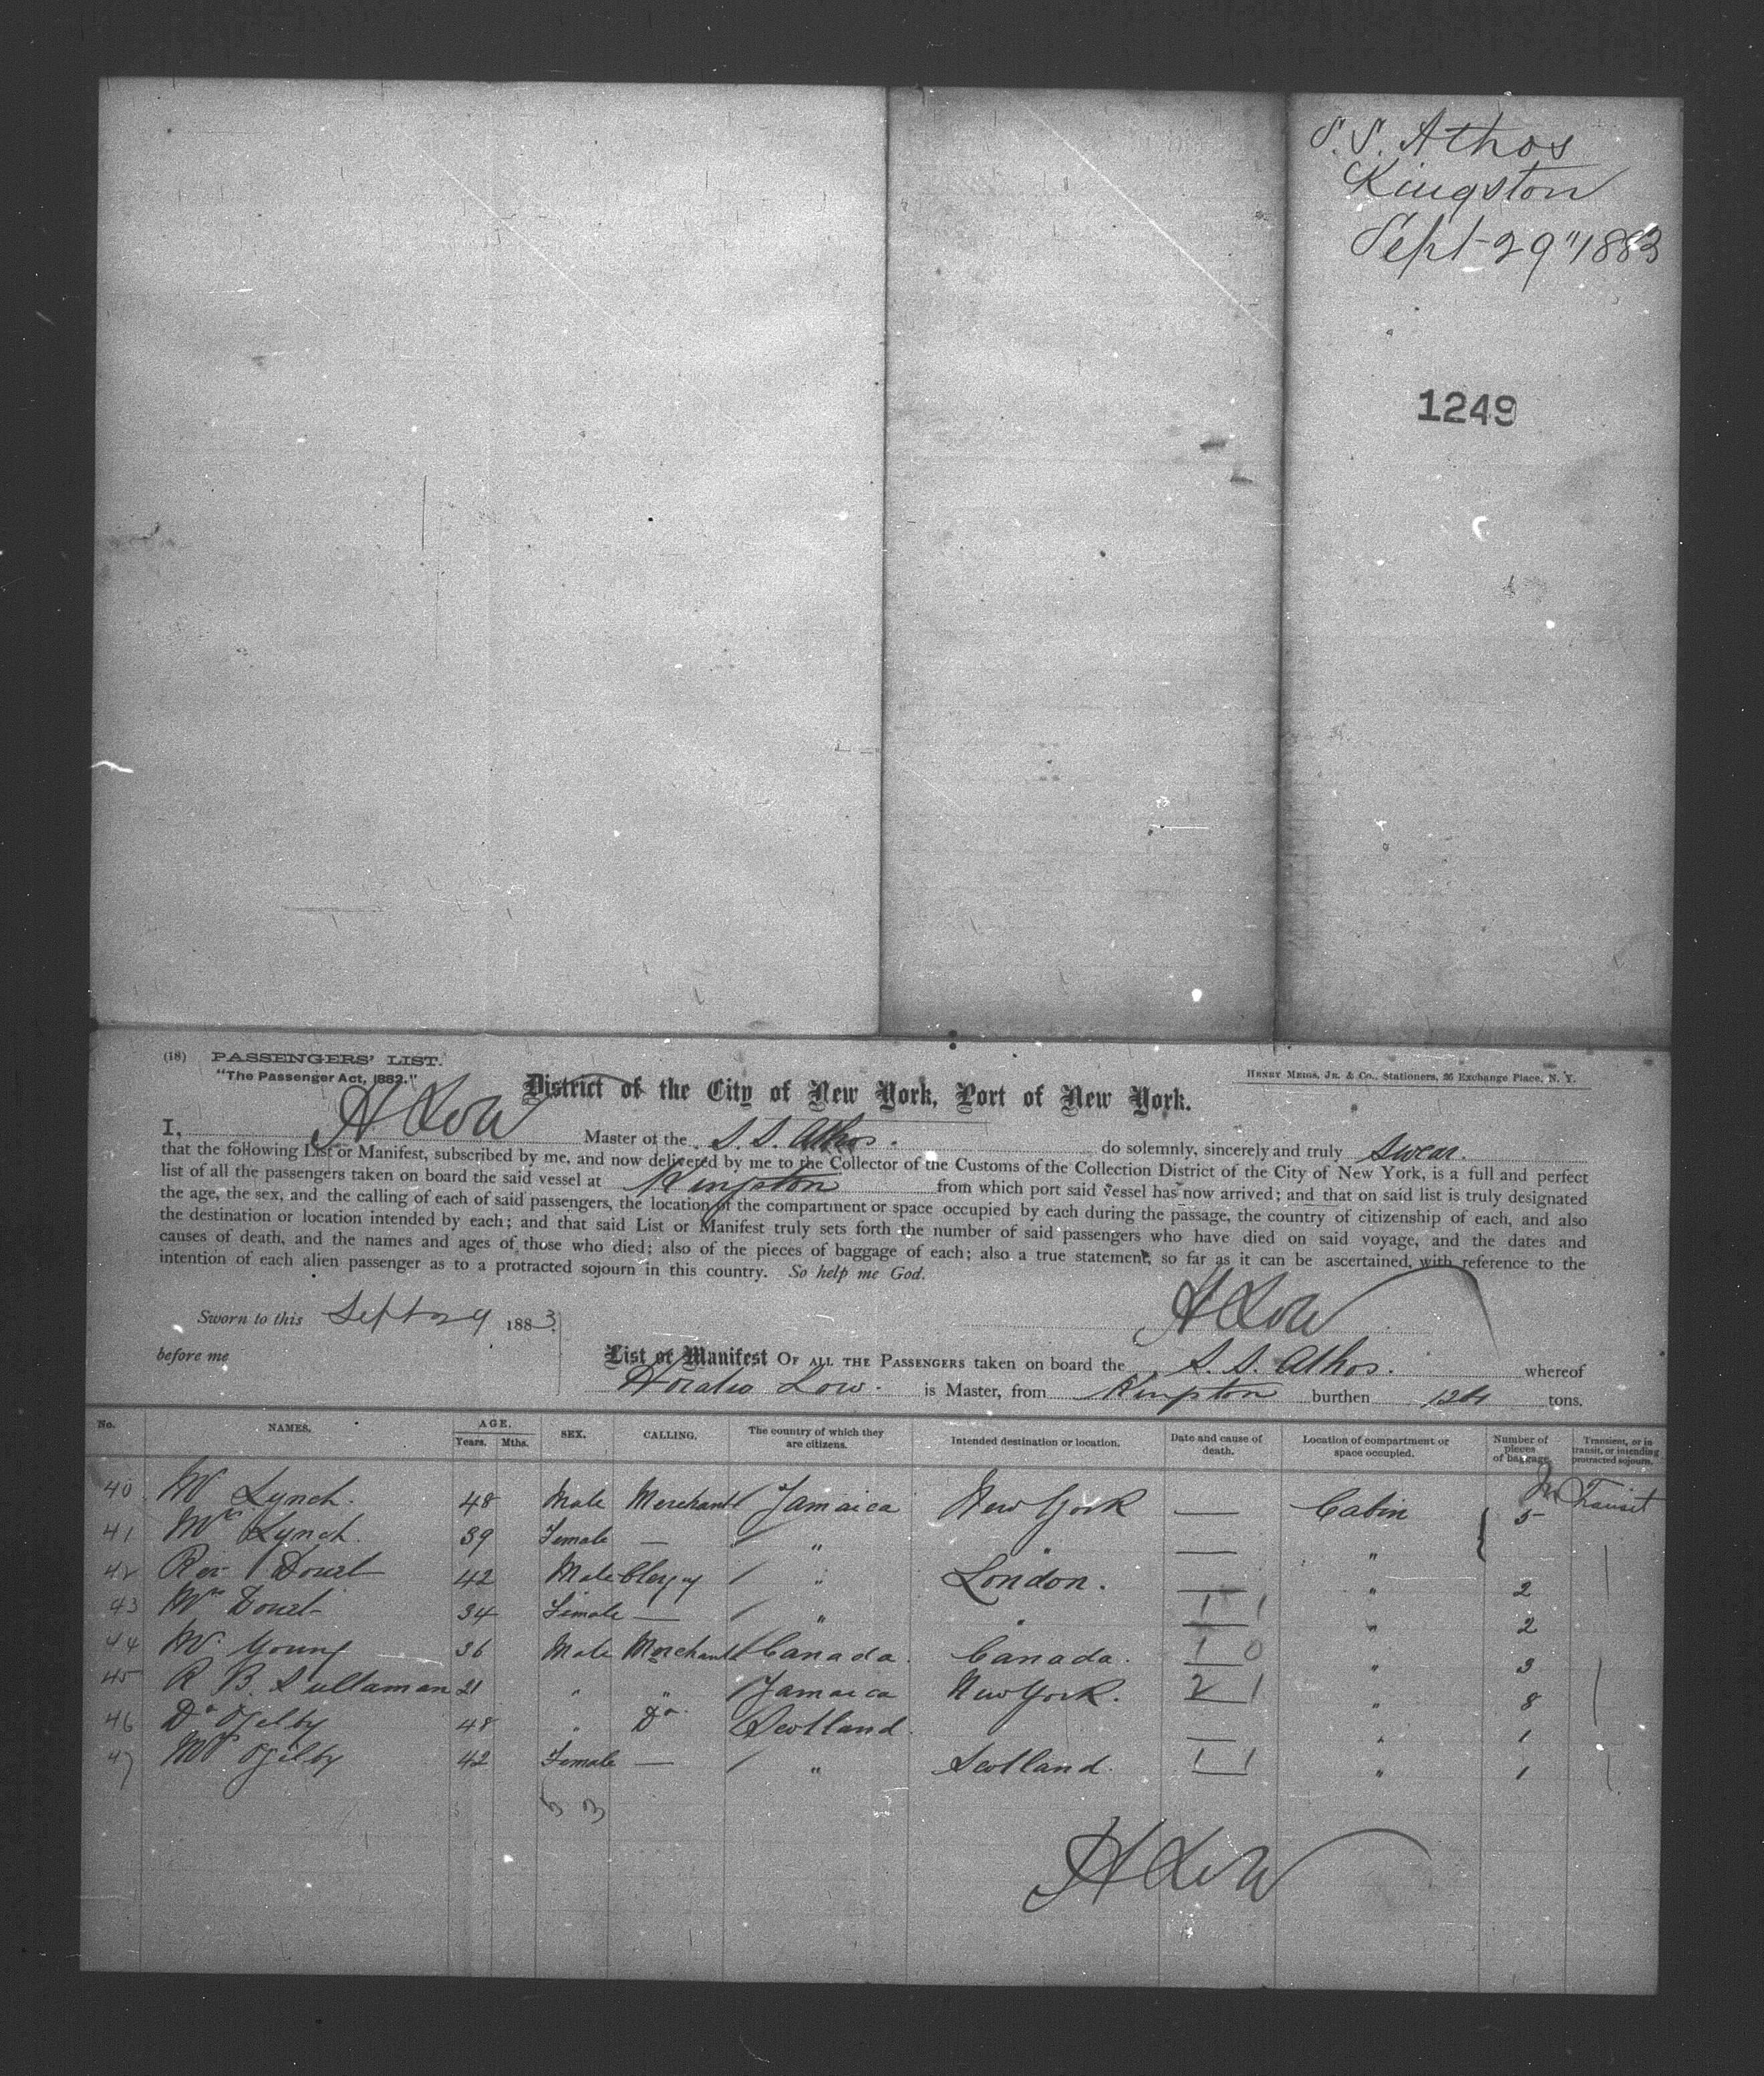 S.S. Athos
Kingston
Sept 29" 1883
1249
(18) PASSENGERS' LIST.
"The Passenger Act, 1882."
HENRY MEIGS, JR. & CO., Stationers, 26 Exchange Place, N. Y.
District of the City of New York, Port of New York.
I, H Low Master of the S. S. Athos. do solemnly, sincerely and truly Swear.
that the following List or Manifest, subscribed by me, and now delivered by me to the Collector of the Customs of the Collection District of the City of New York, is a full and perfect
list of all the passengers taken on board the said vessel at Kingston from which port said vessel has now arrived; and that on said list is truly designated
the age, the sex, and the calling of each of said passengers, the location of the compartment or space occupied by each during the passage, the country of citizenship of each, and also
the destination or location intended by each; and that said List or Manifest truly sets forth the number of said passengers who have died on said voyage, and the dates and
causes of death, and the names and ages of those who died; also of the pieces of baggage of each; also a true statement, so far as it can be ascertained, with reference to the
intention of each alien passenger as to a protracted sojourn in this country. So help me God.
Sworn to this Sept 29 1883.
H Low
before me
List or Manifest OF ALL THE PASSENGERS taken on board the S. S. Athos. whereof
Horatio Low. is Master, from Kingston burthen tons.
No. NAMES. AGE. Years. Mths. SEX. CALLING. The country of which they are citizens. Intended destination or location. Date and cause of death. Location of compartment or space occupied. Number of pieces of baggage. Transient, or in transit, or intending protracted sojourn.
40 Mr Lynch. 48 Male Merchant Jamaica New York — Cabin 5 In Transit
41 Mrs Lynch. 39 Female — " " — "
42 Rev Douet 42 Male Clergy " London. — " 2
43 Mrs Douet 34 Female — " " 1 1 " 2
44 Mr Young 36 Male Merchant Canada. Canada. 1 0 " 3
45 R B. Sullaman 21 " " Jamaica New York. 2 1 " 8
46 Dr Ogilby 48 " Dr Scotland. — " 1
47 Mrs Ogilby 42 Female — " Scotland. 1 1 " 1
H Low